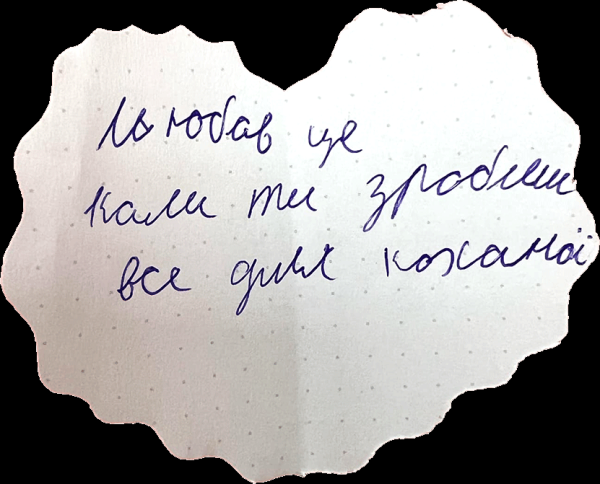 Льюбав це
кали ти зробиш
все для коханої